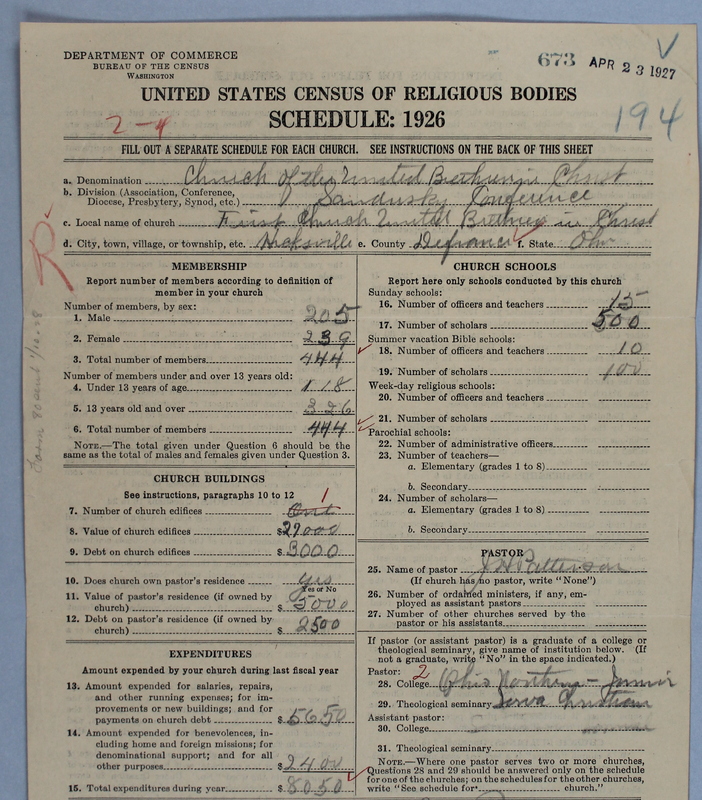 673 APR 23 1927
DEPARTMENT OF COMMERCE
BUREAU OF THE CENSUS
WASHINGTON
UNITED STATES CENSUS OF RELIGIOUS BODIES
SCHEDULE: 1926
194
2-4
FILL OUT A SEPARATE SCHEDULE FOR EACH CHURCH. SEE INSTRUCTIONS ON THE BACK OF THIS SHEET
a. Denomination Church of the United Brethren in Christ
b. Division (Association, Conference,
Diocese, Presbytery, Synod, etc.) Sandusky Conference
c. Local name of church First Church United Brethren in Christ
d. City, town, village, or township, etc. Hicksville e. County Defiance f. State Ohio
MEMBERSHIP
Report number of members according to definition of
member in your church
Number of members, by sex:
1. Male 205
2. Female 239
3. Total number of members 444
Number of members under and over 13 years old:
4. Under 13 years of age 118
5. 13 years old and over 326
6. Total number of members 444
NOTE.—The total given under Question 6 should be the
same as the total of males and females given under Question 3.
CHURCH BUILDINGS
See instructions, paragraphs 10 to 12
7. Number of church edifices One 1
8. Value of church edifices $29000
9. Debt on church edifices $3000
10. Does church own pastor's residence yes
Yes or No
11. Value of pastor's residence (if owned by
church) $5000
12. Debt on pastor's residence (if owned by
church) $2500
EXPENDITURES
Amount expended by your church during last fiscal year
13. Amount expended for salaries, repairs,
and other running expenses; for im-
provements or new buildings; and for
payments on church debt $5650
14. Amount expended for benevolences, in-
cluding home and foreign missions; for
denominational support; and for all
other purposes $2400
15. Total expenditures during year $8050
CHURCH SCHOOLS
Report here only schools conducted by this church
Sunday schools:
16. Number of officers and teachers 15
17. Number of scholars 500
Summer vacation Bible schools:
18. Number of officers and teachers 10
19. Number of scholars 100
Week-day religious schools:
20. Number of officers and teachers
21. Number of scholars
Parochial schools:
22. Number of administrative officers
23. Number of teachers—
a. Elementary (grades 1 to 8)
b. Secondary
24. Number of scholars—
a. Elementary (grades 1 to 8)
b. Secondary
PASTOR
25. Name of pastor Patterson
(If church has no pastor, write "None")
26. Number of ordained ministers, if any, em-
ployed as assistant pastors
27. Number of other churches served by the
pastor or his assistants
If pastor (or assistant pastor) is a graduate of a college or
theological seminary, give name of institution below. (If
not a graduate, write "No" in the space indicated.)
Pastor: 2
28. College Ohio Northern - Junior
29. Theological seminary Iowa Christian
Assistant pastor:
30. College
31. Theological seminary
NOTE.—Where one pastor serves two or more churches,
Questions 28 and 29 should be answered only on the schedule
for one of the churches; on the schedules for the other churches,
write "See schedule for church."